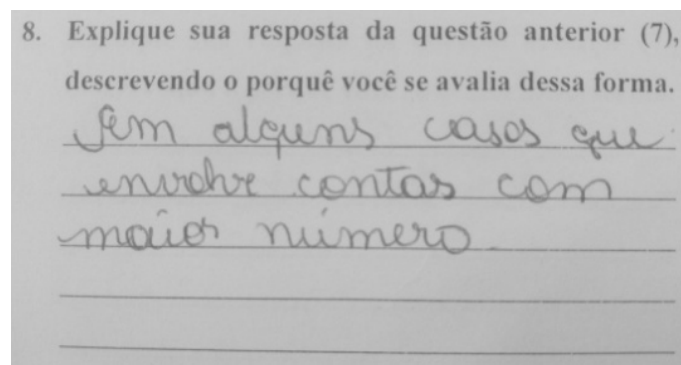 8. Explique sua resposta da questão anterior (7),
descrevendo o porquê você se avalia dessa forma.
Tem alguns casos que
envolve contas com
maior número.